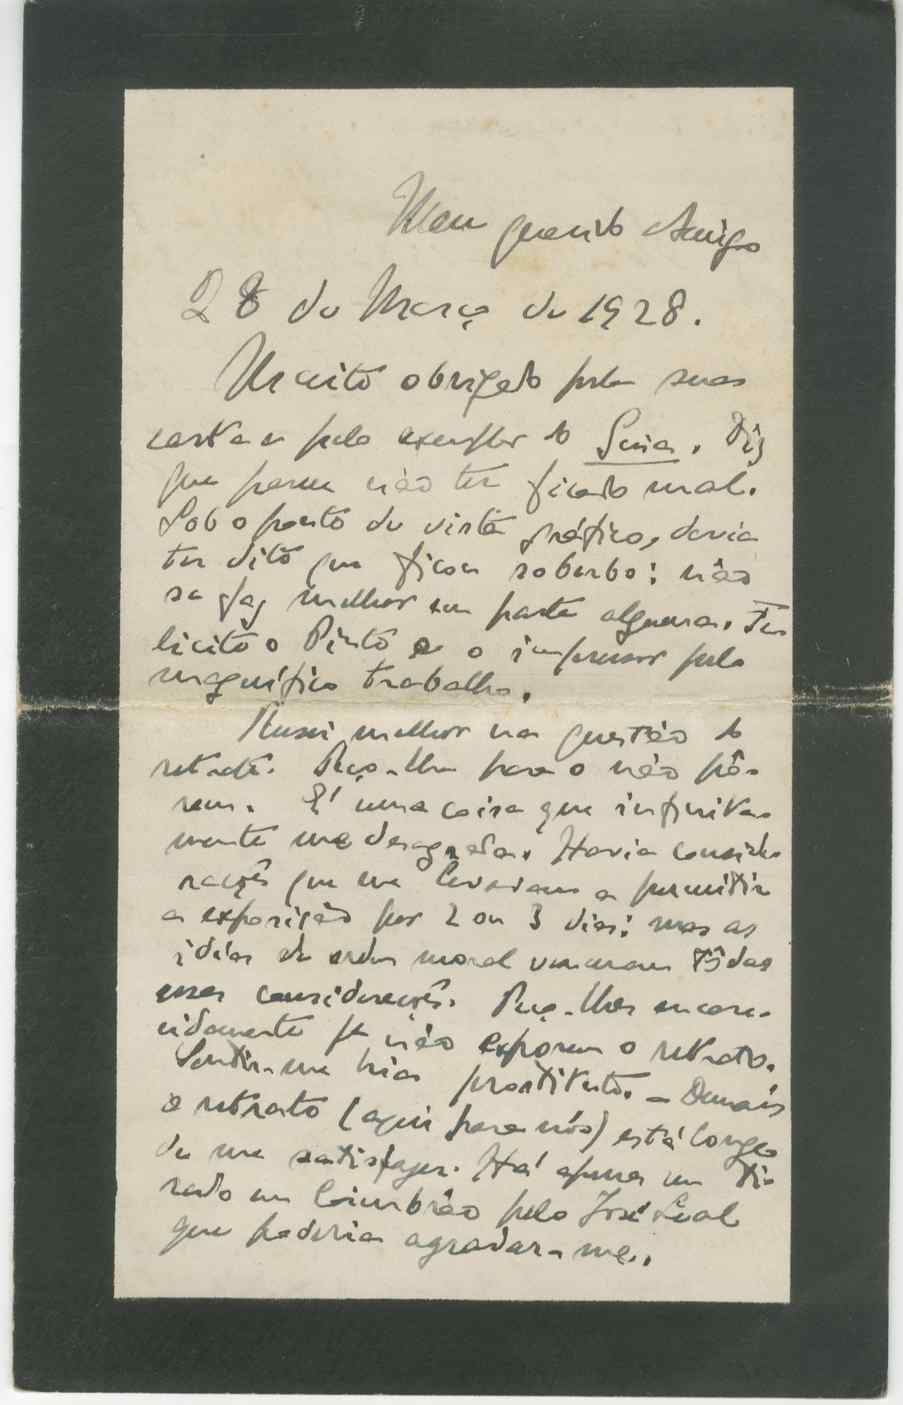 Meu querido Amigo
28 de Março de 1928.
Muito obrigado pelas suas
carta e pelo exemplar do Guia. Diz
que parece não ter ficado mal.
Sob o ponto de vista gráfico, devia
ter dito que ficou soberbo: não
se faz melhor em parte alguma. Fe-
licito o Pinto e o impressor pelo
magnífico trabalho.
melhor na questão do
retrato. Peço-lhe para o não pô-
rem. É uma coisa que infinita-
mente me desagrada. Havia conside-
rações que me levavam a permitir
a exposição por 2 ou 3 dias: mas as
idéias de ordem moral venceram tôdas
essas considerações. Peço-lhes encare-
cidamente que não exponham o retrato.
Sentir-me hia prostituto. - Demais
o retrato (aqui para nós) está longe
de me satisfazer. Há apenas um ti-
rado em Coimbrão pelo José Leal
que poderia agradar-me.